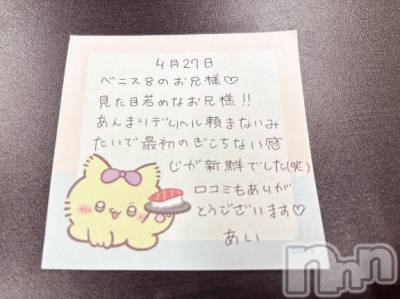 4月27日
ベニス8のお兄様♡
見た目若めなお兄様!!
あんまりデリヘル頼まないみ
たいで最初のぎこちない感
じが新鮮でした(笑)
口コミもありが
とうございます♡
あい
Nnn